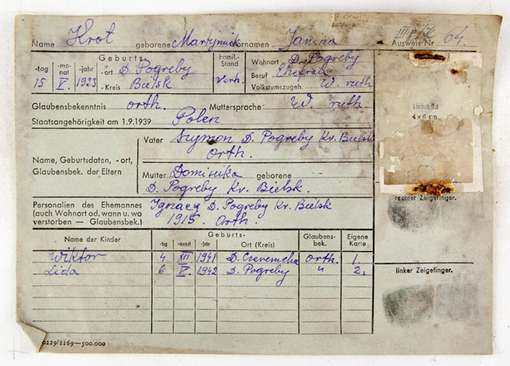 Name Krot geborene Marzyniuk Vornamen Janina Ausweis Nr. 64.
Geburts- Famil.-Stand Wohnort D. Pogreby
-tag -monat -jahr -ort D. Pogreby Beruf
15 V. 1923 -Kreis Bielsk verh. Volkstumszugeh. W. ruth
Glaubensbekenntnis orth. Muttersprache: W. ruth.
Staatsangehörigkeit am 1.9.1939 Polen
Name, Geburtsdaten, -ort, Glaubensbek. der Eltern
Vater Szymon D. Pogreby Kr. Bielsk
Orth.
Mutter Dominika geborene
D. Pogreby Kr. Bielsk.
Personalien des Ehemannes Ignacy D. Pogreby Kr. Bielsk
(auch Wohnort od. wann u. wo 1915. Orth.
verstorben — Glaubensbek.)
rechter Zeigefinger.
Name der Kinder Geburts- Glaubens-bek. Eigene Karte
-tag -monat -jahr Ort (Kreis)
Wiktor 4 III 1941 D. orth. 1.
Lida 6 V. 1942 D. Pogreby " 2.
linker Zeigefinger.
0129/1169—500.000